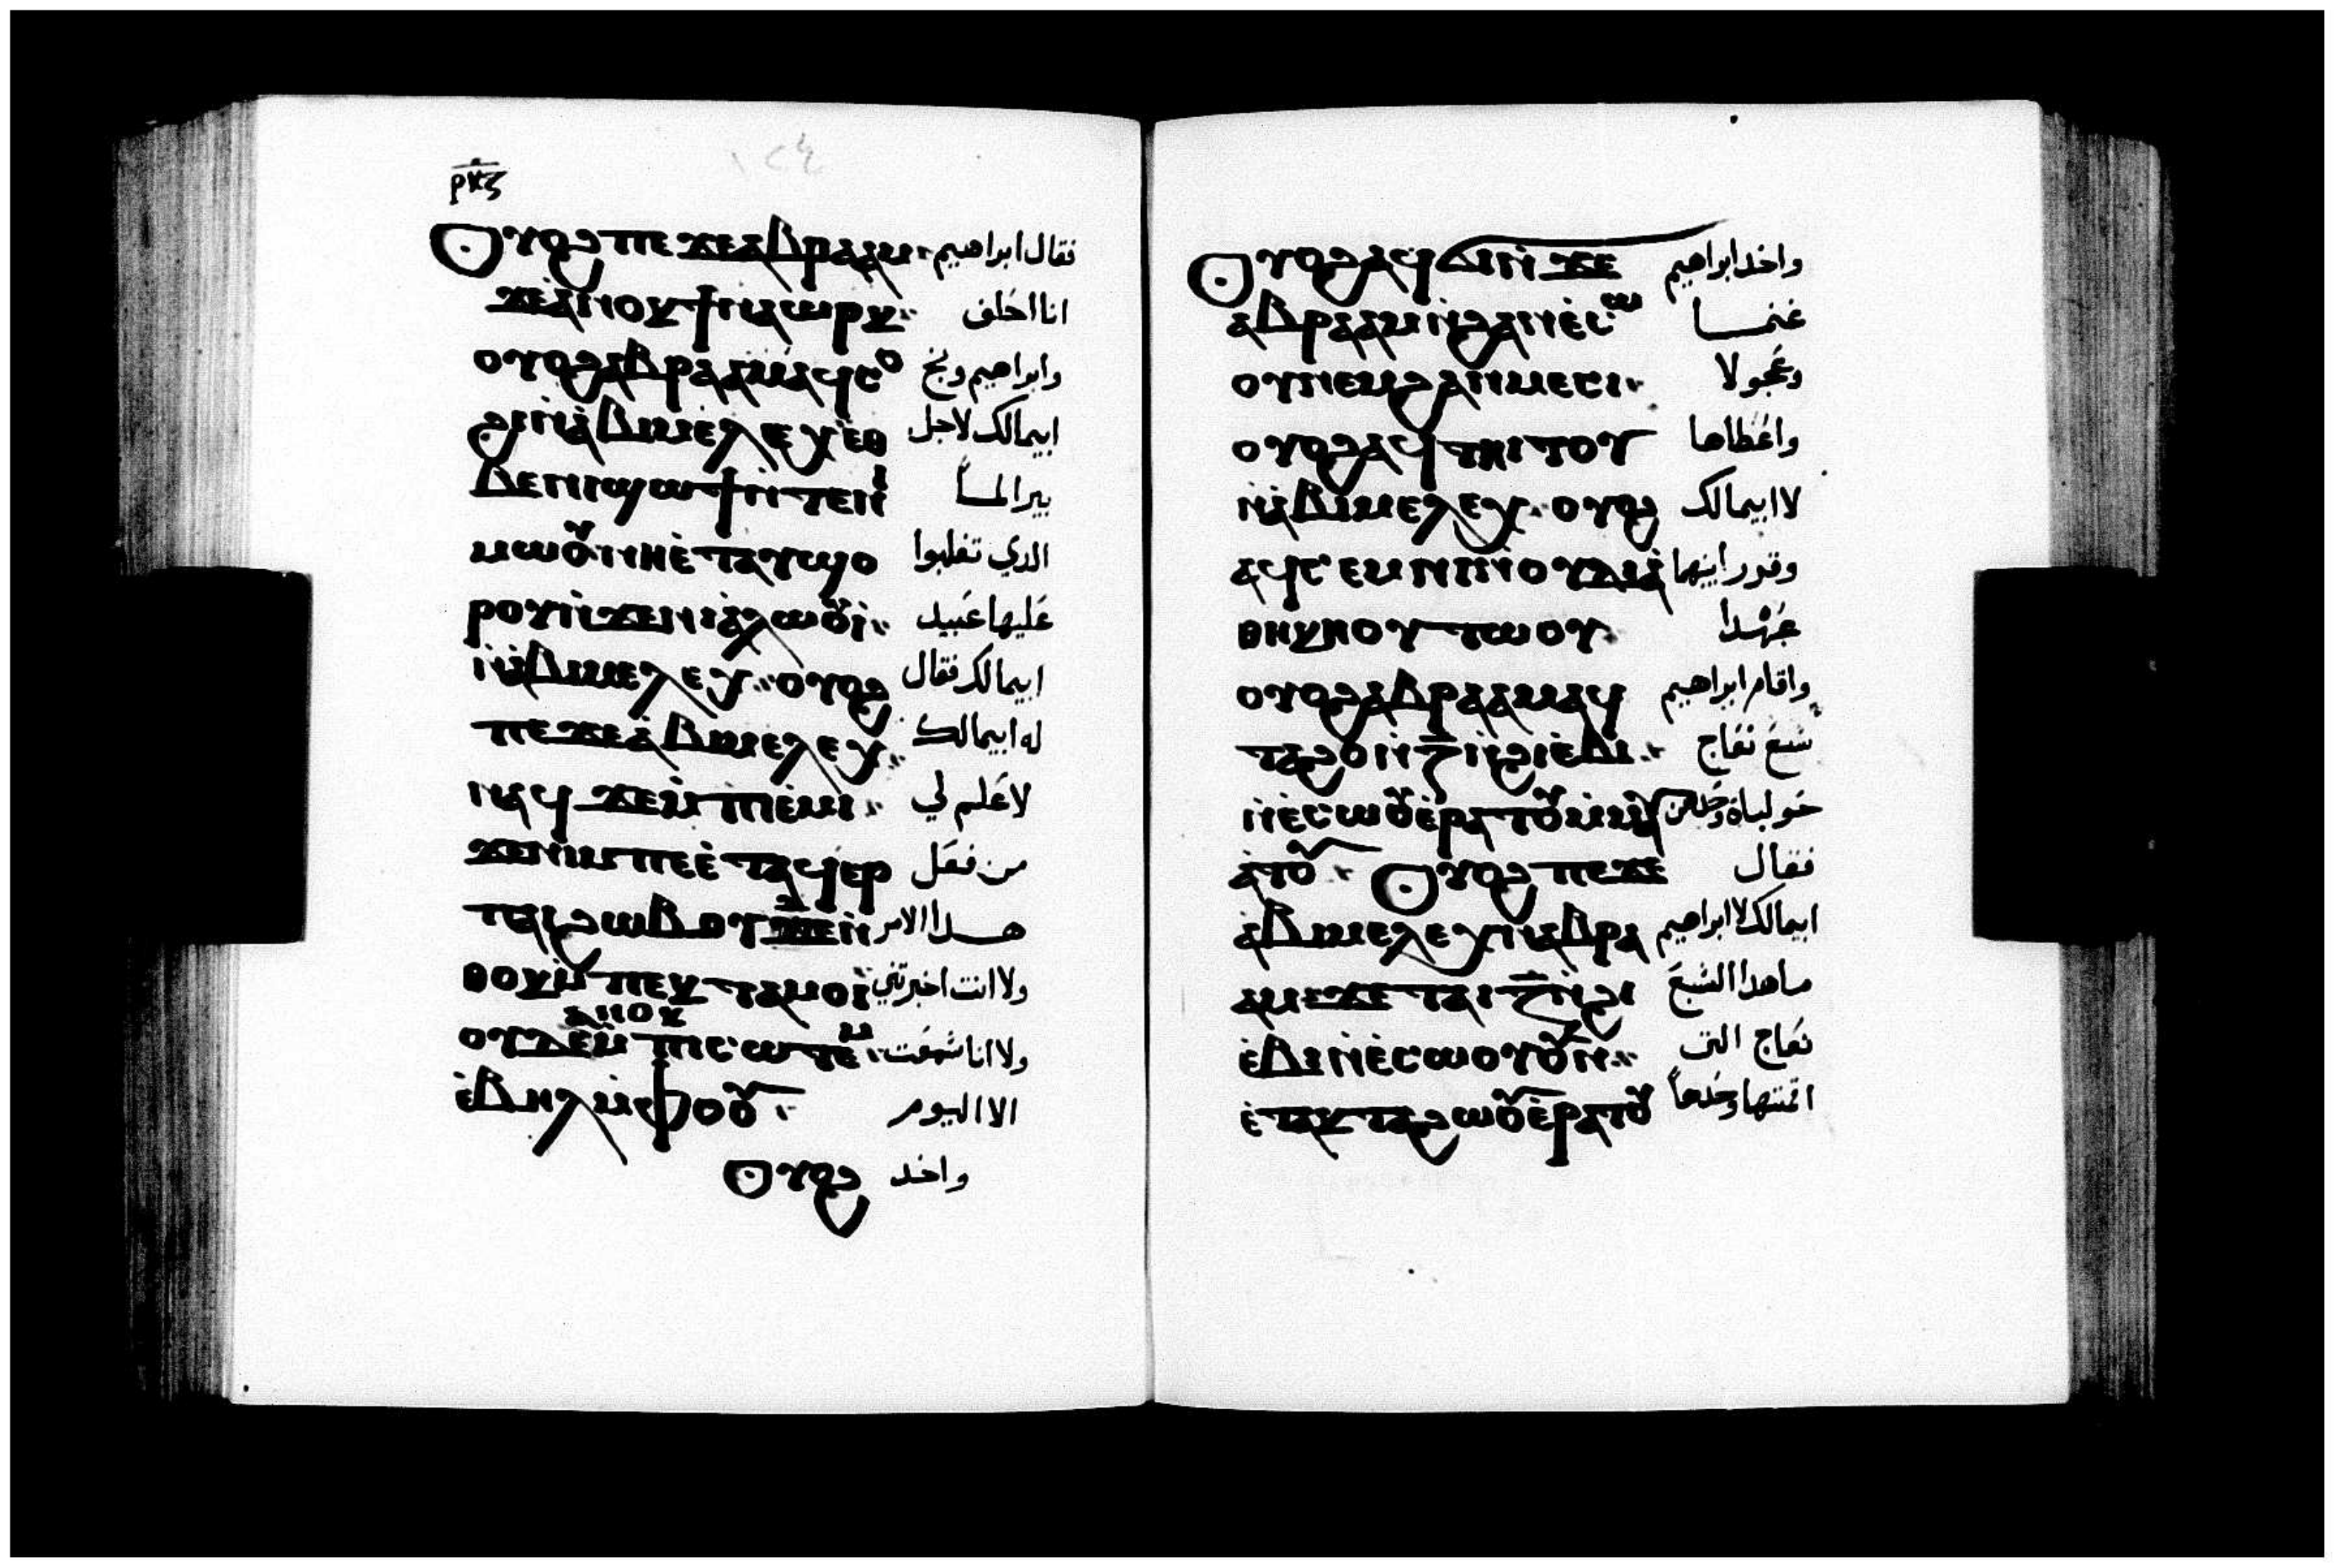 ⲣⲕⲍ
١٢٤
Ⲟⲩⲟϩ ⲡⲉϫⲉ ⲁⲃⲣⲁⲁⲙ فقال ابراهيم
ϫⲉ ⲁⲛⲟⲕ ϯⲛⲁⲱⲣⲕ انا احلف
ⲟⲩⲟϩ ⲁⲃⲣⲁⲁⲙ ⲁϥⲥⲟ وابراهيم وبخ
ϩⲓ ⲛ̀ⲁⲃⲓⲙⲉⲗⲉⲭ ⲉⲑ ابيمالك لاجل
ⲃⲉ ⲛⲓϣⲱϯ ⲛ̀ⲧⲉ ⲛⲓ بير الما
ⲙⲱⲟⲩ ⲛⲏⲉ̀ⲧⲁⲩϭⲟ الدي تغلبوا
ⲣⲟⲩ ⲛ̀ϫⲉ ⲛⲓⲁ̀ⲗⲱⲟⲩⲓ̀ عليها عبيد
ⲛ̀ⲁⲃⲓⲙⲉⲗⲉⲭ ⲟⲩⲟϩ ابيمالك فقال
ⲡⲉϫⲉ ⲁⲃⲓⲙⲉⲗⲉⲭ له ابيمالك
ⲛⲁϥ ϫⲉ ⲙ̀ⲡⲓⲉ̀ⲙⲓ لا علم لي
ϫⲉ ⲛⲓⲙ ⲡⲉ ⲉ̀ⲧⲁϥⲉⲣ من فعل
ⲡⲁⲓϩⲱⲃ ⲟⲩⲇⲉ ⲛ̀ هدا الامر
ⲑⲟⲕ ⲙ̀ⲡⲉⲕⲧⲁⲙⲟⲓ ولا انت اخبرتني
ⲟⲩⲇⲉ ⲁⲛⲟⲕ ⲙ̀ⲡⲓⲥⲱⲧⲉⲙ ولا انا سمعت
ⲉ̀ⲃⲏⲗ ⲙ̀ⲫⲟⲟⲩ الا اليوم
Ⲟⲩⲟϩ واخد
Ⲟⲩⲟϩ ⲁϥϭⲓ ⲛ̀ϫⲉ واخد ابراهيم
ⲁⲃⲣⲁⲁⲙ ⲛ̀ϩⲁⲛⲉ̀ⲥⲱ غنما
ⲟⲩ ⲛⲉⲙ ϩⲁⲛⲙⲉⲥⲓ وعجولا
ⲟⲩⲟϩ ⲁϥⲧⲏⲓⲧⲟⲩ واعطاها
ⲛ̀ⲁⲃⲓⲙⲉⲗⲉⲭ ⲟⲩⲟϩ لا ابيمالك
ⲁϥⲥⲉⲙⲛⲓ ⲛ̀ⲟⲩⲇⲓⲁ̀
ⲑⲏⲕⲏ ⲟⲩⲧⲱⲟⲩ عهدا
ⲟⲩⲟϩ ⲁⲃⲣⲁⲁⲙ ⲁϥ واقام ابراهيم
ⲧⲁϩⲟ ⲛ̀ⲍ̄ ⲛ̀ϩⲓⲉ̀ⲃⲓ سبع نعاج
ⲛ̀ⲉ̀ⲥⲱⲟⲩ ⲉ̀ⲣⲁⲧⲟⲩ ⲙ̀ⲙⲁⲩ
ⲁⲧⲟⲩ Ⲟⲩⲟϩ ⲡⲉϫⲉ فقال
ⲁⲃⲓⲙⲉⲗⲉⲭ ⲛ̀ⲁⲃⲣⲁ ابيمالك لا ابراهيم
ⲁⲙ ϫⲉ ⲧⲁⲓ ⲍ̄ ⲛ̀ϩⲓ ما هدا السبع
ⲉ̀ⲃⲓ ⲛ̀ⲉ̀ⲥⲱⲟⲩ نعاج التى
ⲉ̀ⲧⲁⲕⲧⲁϩⲱⲟⲩ ⲉ̀ⲣⲁⲧⲟⲩ اقمتها وحدها